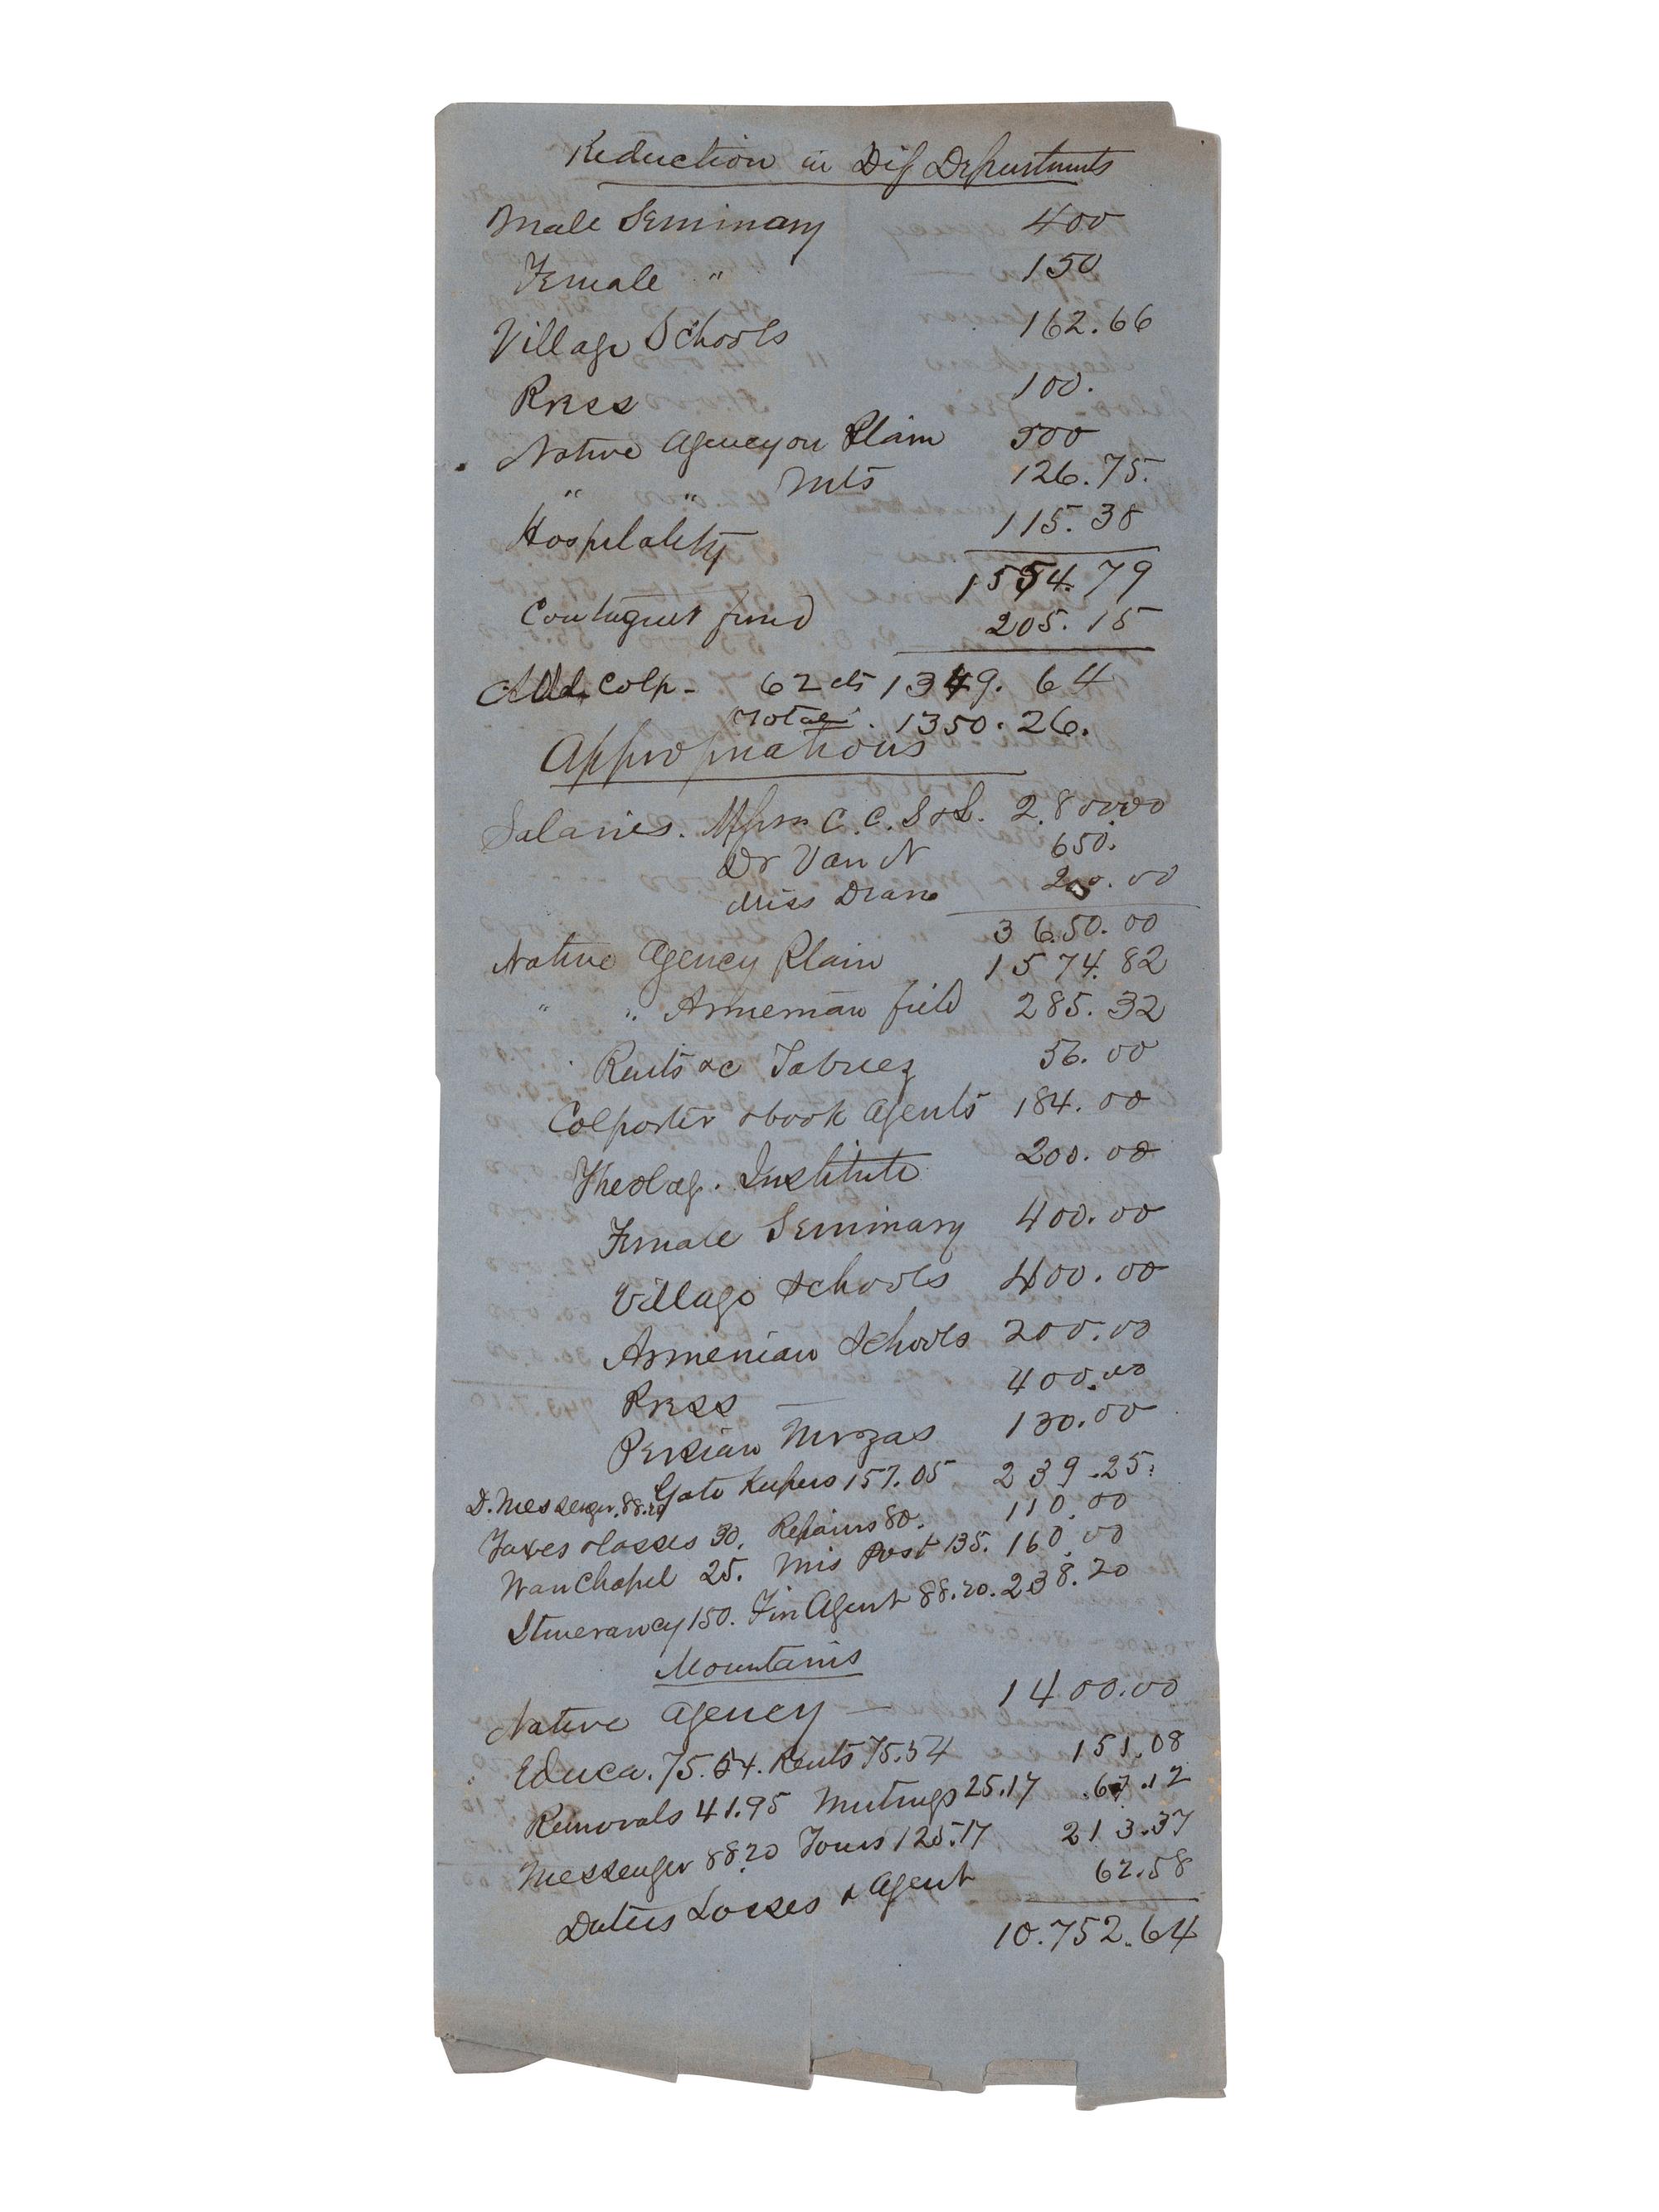 Reduction in Dif Departments
Male Seminary 400
Female " 150
Village Schools 162.66
Press 100.
Native Agency on Plain 500
" " Mts 126.75.
Hospitality 115.38
1554.79
Contingent fund 205.15
Add. Colp - 62 cts 1349.64
Total. 1350.26.
Appropriations
Salaries. C. C. S & L. 2.800.00
Dr Van N 650.
Miss Dean 200.00
3650.00
Native Agency Plain 1574.82
" " Armenian field 285.32
Rents &c Tabreez 56.00
Colporter & book Agents 184.00
Theolog. Institute 200.00
Female Seminary 400.00
Village Schools 400.00
Armenian Schools 200.00
Press — 400.00
Persian Mirzas 130.00
D. Messenger. 88.20 Gate Keepers 151.05 239.25.
Taxes & losses 30. Repairs 80. 110.00
Wan Chapel 25. Mis Post 135. 160.00
Itinerancy 150. Fin Agent 88.20. 238.20
Mountains
Native Agency — 1400.00
" Educa. 75.54. Rents 75.54 151.08
Removals 41.95 Meetings 25.17 .67.12
Messenger 88.20 Tours 125.17 213.37
Duties Losses & Agent 62.58
10.752.64